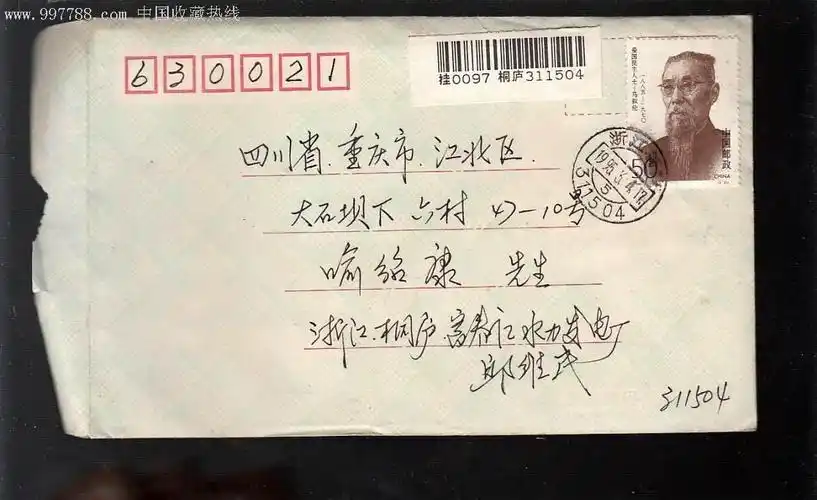 www.997788.com 中国收藏热线
630021
桂0097 桐庐311504
爱国民主人士-马叙伦
一八八五-一九七〇
中国邮政
50
CHINA
浙江
311504
四川省.重庆市.江北区.
大石坝下六村 47-10号
喻绍康 先生
浙江.桐庐富春江水力发电厂
邱维民
311504